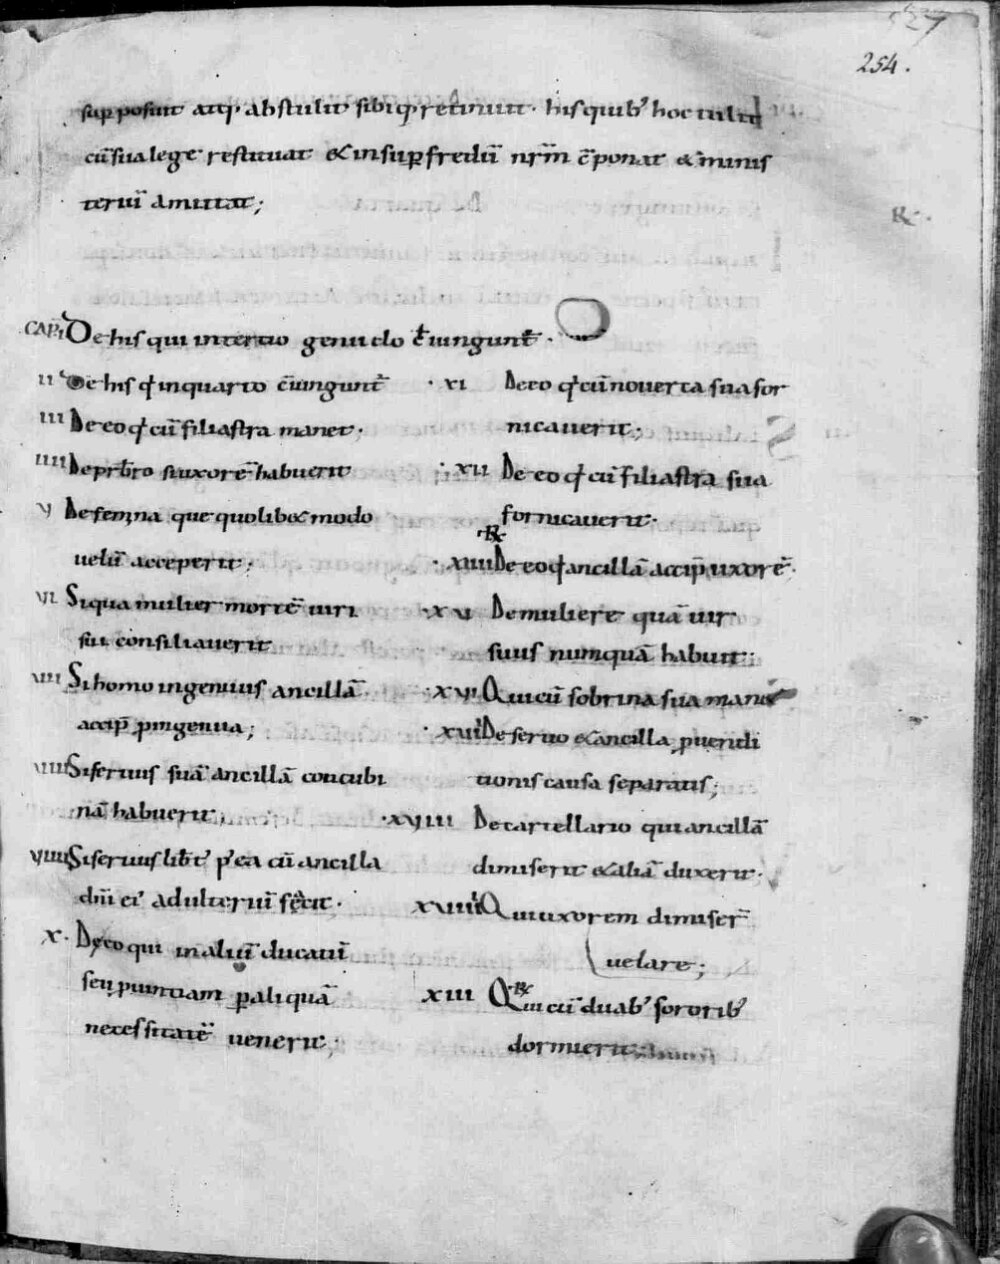 527
254.
sup̱posuit atq; abstulit sibiq; retinuit. hisquib; hoc tulit
cū sua lege restituat & insup̱ fredū nr̄m cōponat & minis
teriū amittat;
CAP̄ I De his qui in tertio genuclo c̄iungunt̄.
II De his q̇ in quarto c̄iungunt̄
III De eo q̇ cū filiastra manet.
IIII De prb̄ro si uxorē habuerit
V De femina que quolib& modo
uelū acceperit;
VI Si qua mulier mortē uiri
sui consiliauerit
VII Si homo ingenuus ancillā
accip̄ p̱ ingenua;
VIII Si seruus suā ancillā concubi
nā habuerit;
VIIII Si seruus lib̄t' p' ea cū ancilla
dn̄i ei' adulteriū fecit.
X. De eo qui in aliū ducatū
seu puintiam p̱ aliquā
necessitatē uenerit;
. XI De eo q̇ cū nouerca sua for
nicauerit;
. XII De eo q̇ cū filiastra sua
fornicauerit.
. XIIII De eo q̇ ancillā accip̄ uxorē.
. XV De muliere quā uir
suus numquā habuit;
. XVI Qui cū sobrina sua man&
. XVII De seruo & ancilla p̱uendi
tionis causa separatis;
. XVIII De cartellario qui ancillā
dimiserit & aliā duxerit.
XVIIII Qui uxorem dimiser̄
uelare;
XIII Qui cū duab; sororib;
dormierit;